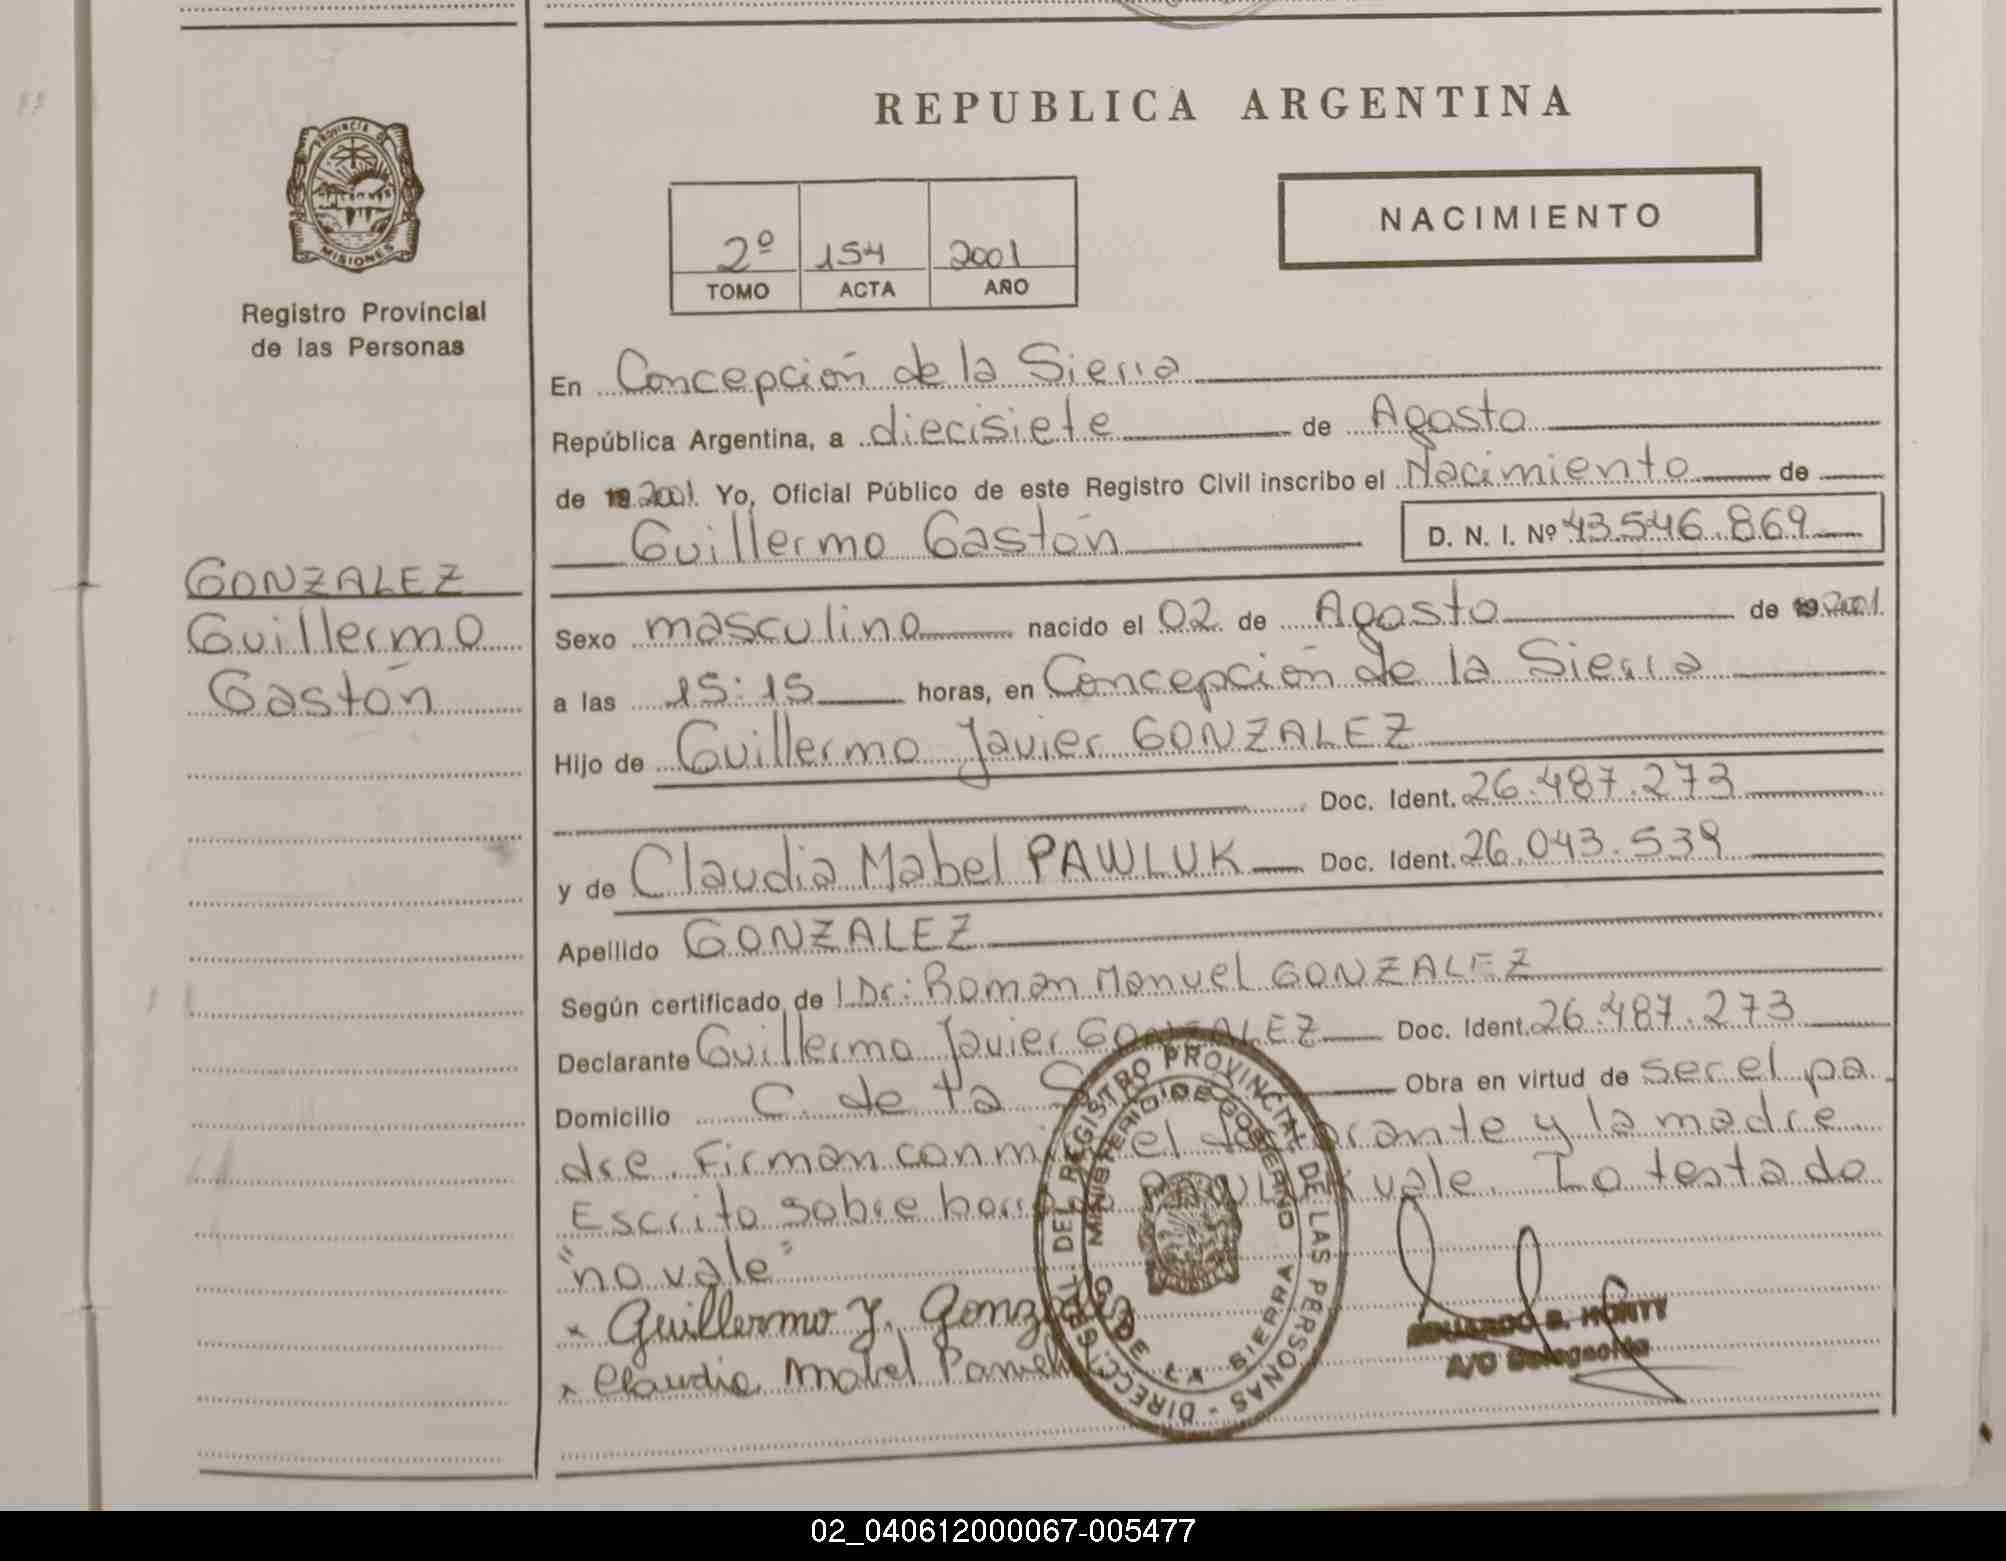 REPUBLICA ARGENTINA
PROVINCIA DE MISIONES
Registro Provincial
de las Personas
NACIMIENTO
2º 154 2001
TOMO ACTA AÑO
En Concepción de la Sierra
República Argentina, a diecisiete de Agosto
de 19 2001. Yo, Oficial Público de este Registro Civil inscribo el Nacimiento de
Guillermo Gastón D. N. I. Nº 43.546.869
GONZALEZ
Guillermo
Gastón
Sexo masculino nacido el 02 de Agosto de 19 2001
a las 15:15 horas, en Concepción de la Sierra
Hijo de Guillermo Javier GONZALEZ
Doc. Ident. 26.487.273
y de Claudia Mabel PAWLUK Doc. Ident. 26.043.539
Apellido GONZALEZ
Según certificado de Dr: Roman Manuel GONZALEZ
Declarante Guillermo Javier GONZALEZ Doc. Ident. 26.487.273
Domicilio C. de la S Obra en virtud de ser el pa
dre. Firman conmigo el declarante y la madre
Escrito sobre borrado PAWLUK vale. Lo testado
"no vale"
x Guillermo J. Gonzalez
x Claudia Mabel Pawluk
DIRECC. GRAL. DEL REGISTRO PROVINCIAL DE LAS PERSONAS
MINISTERIO DE GOBIERNO
DE LA SIERRA
EDUARDO B. MONTY
A/C Delegación
02_040612000067-005477